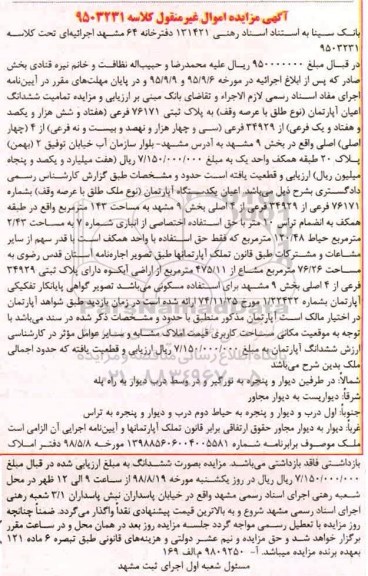 آگهی مزایده اموال غیرمنقول کلاسه ۹۵۰۳۲۳۱
بانک سینا به استناد اسناد رهنی ۱۳۱۴۲۱ دفترخانه ۶۴ مشهد اجرائیه‌ای تحت کلاسه
۹۵۰۳۲۳۱
در قبال مبلغ ۹۵۰۰۰۰۰۰۰ ریال علیه محمدرضا و حبیب‌اله نظافت و خانم نیره قنادی بخش
صادر که پس از ابلاغ اجرائیه در مورخه ۹۵/۹/۶ و ۹۵/۹/۹ و در پایان مهلت‌های مقرر در آیین‌نامه
اجرای مفاد اسناد رسمی لازم الاجراء و تقاضای بانک مبنی بر ارزیابی و مزایده تمامیت ششدانگ
اعیان آپارتمان (نوع ملک طلق با عرصه وقف) به پلاک ثبتی ۷۶۱۷۱ فرعی (هفتاد و شش هزار و یکصد
و هفتاد و یک فرعی) از ۳۴۹۲۹ فرعی (سی و چهار هزار و نهصد و بیست و نه فرعی) از ۴ (چهار
اصلی) اصلی واقع در بخش ۹ مشهد به آدرس مشهد- بلوار سازمان آب خیابان توفیق ۲ (بهمن)
پلاک ۲۰ طبقه همکف واحد یک به مبلغ ۷/۱۵۰/۰۰۰/۰۰۰ ریال (هفت میلیارد و یکصد و پنجاه
میلیون ریال) ارزیابی و قطعیت یافته است حدود و مشخصات طبق گزارش کارشناس رسمی
دادگستری بشرح ذیل می‌باشد اعیان یکدستگاه آپارتمان (نوع ملک طلق با عرصه وقف) بشماره
۷۶۱۷۱ فرعی از ۳۴۹۲۹ فرعی از ۴ اصلی بخش ۹ مشهد به مساحت ۱۴۳ مترمربع واقع در طبقه
همکف به انضمام تراس ۲۰ متر با حق استفاده اختصاصی از انباری شماره ۷ به مساحت ۲/۴۳
مترمربع حیاط ۱۳۰/۴۸ مترمربع که فقط حق استفاده با واحد همکف است با قدر سهم از سایر
مشاعات و مشترکات طبق قانون تملک آپارتمانها طبق تصویر اجاره‌نامه آستان قدس رضوی به
مساحت ۷۶/۲۶ مترمربع مشاع از ۴۷۵/۱۱ مترمربع از اراضی آبکوه دارای پلاک ثبتی ۳۴۹۲۹
فرعی از ۴ اصلی بخش ۹ مشهد برای استفاده مسکونی می‌باشد تصویر گواهی پایانکار تفکیکی
آپارتمان بشماره ۱/۲۲۴۳۲ مورخ ۷۴/۱۱/۲۵ ارائه شده است در زمان بازدید طبق شواهد آپارتمان
در اختیار مالک است آپارتمان مذکور منطبق با حدود و مشخصات ذکر شده در سند می‌باشد با
توجه به موقعیت مکانی مساحت کاربری قیمت املاک مشابه و سایر عوامل مؤثر در کارشناسی
ارزش ششدانگ آپارتمان به مبلغ ۷/۱۵۰/۰۰۰/۰۰۰ ریال ارزیابی و قطعیت یافته که حدود اجمالی
ملک بدین شرح می‌باشد
شمالاً: در طرفین دیوار و پنجره به نورگیر و در وسط درب دیوار به راه پله
شرقاً: دیواریست به دیوار مجاور
جنوباً: اول درب و دیوار و پنجره به حیاط دوم درب و دیوار و پنجره به تراس
غرباً: دیوار به دیوار مجاور حقوق ارتفاقی برابر قانون تملک آپارتمانها و آیین‌نامه اجرایی آن الزامی است
ملک موصوف برابرنامه شماره ۱۳۹۸۸۵۶۰۶۰۰۴۰۰۵۵۸۱ مورخه ۹۸/۵/۸ دفتر املاک
بازداشتی فاقد بازداشتی می‌باشد. مزایده بصورت ششدانگ به مبلغ ارزیابی شده در قبال مبلغ
۷/۱۵۰/۰۰۰/۰۰۰ ریال در روز یکشنبه مورخه ۹۸/۸/۱۹ از ساعت ۹ الی ۱۲ ظهر در محل
شعبه رهنی اجرای اسناد رسمی مشهد واقع در خیابان پاسداران نبش پاسداران ۳/۱ شعبه رهنی
اجرای اسناد رسمی مشهد شروع و به بالاترین قیمت پیشنهادی نقداً واگذار می‌گردد. ضمناً چنانچه
روز مزایده با تعطیل رسمی مواجه گردد جلسه مزایده روز بعد در همان محل و در ساعت مقرر
برگزار خواهد شد و حق مزایده و نیم عشر دولتی و هزینه‌های قانونی طبق تبصره ۶ ماده ۱۲۱
بعهده برنده مزایده میباشد. آ- ۹۸۰۹۲۵۰ م.الف ۱۶۹
مسئول شعبه اول اجرای ثبت مشهد